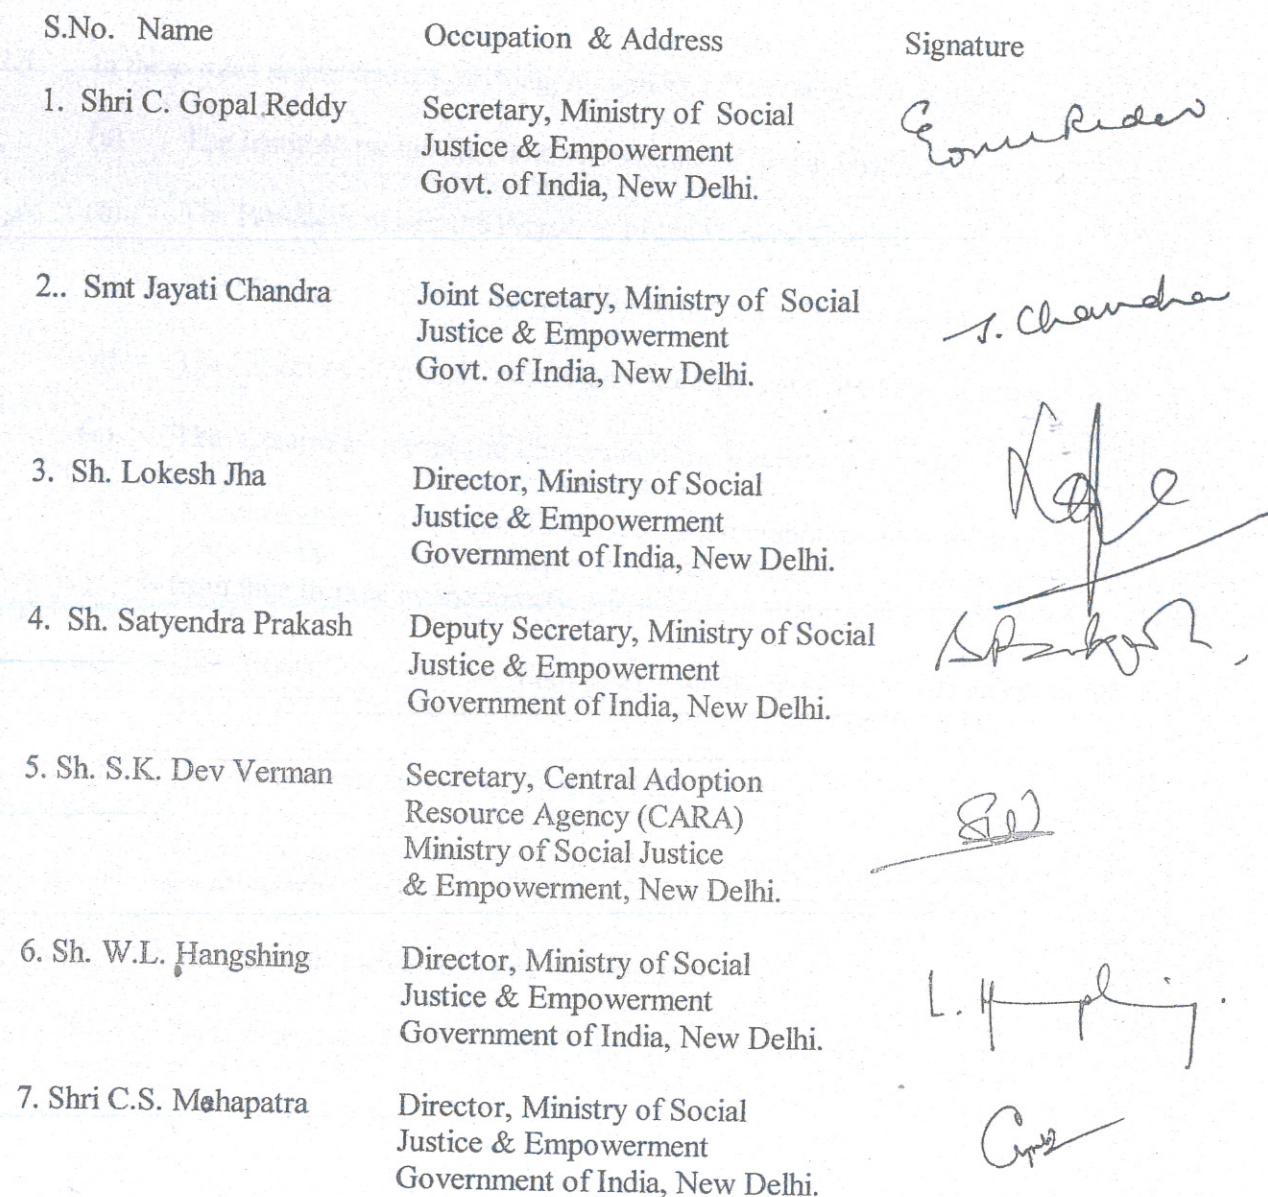 S.No. Name Occupation & Address Signature
1. Shri C. Gopal Reddy Secretary, Ministry of Social
Justice & Empowerment
Govt. of India, New Delhi.
2.. Smt Jayati Chandra Joint Secretary, Ministry of Social J. Chandra
Justice & Empowerment
Govt. of India, New Delhi.
3. Sh. Lokesh Jha Director, Ministry of Social
Justice & Empowerment
Government of India, New Delhi.
4. Sh. Satyendra Prakash Deputy Secretary, Ministry of Social
Justice & Empowerment
Government of India, New Delhi.
5. Sh. S.K. Dev Verman Secretary, Central Adoption
Resource Agency (CARA)
Ministry of Social Justice
& Empowerment, New Delhi.
6. Sh. W.L. Hangshing Director, Ministry of Social
Justice & Empowerment
Government of India, New Delhi.
7. Shri C.S. Mahapatra Director, Ministry of Social
Justice & Empowerment
Government of India, New Delhi.